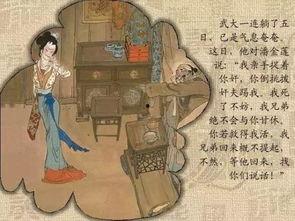 武大一连躺了五
日，已是气息奄奄。
这日，他对潘金莲
说：“我亲手捉着
你奸，你倒挑拨
奸夫踢我，我死
了不妨，我兄弟
绝不会与你甘休。
你若救得我活，我
兄弟回来概不提起，
不然，等他回来，找
你们说话！”